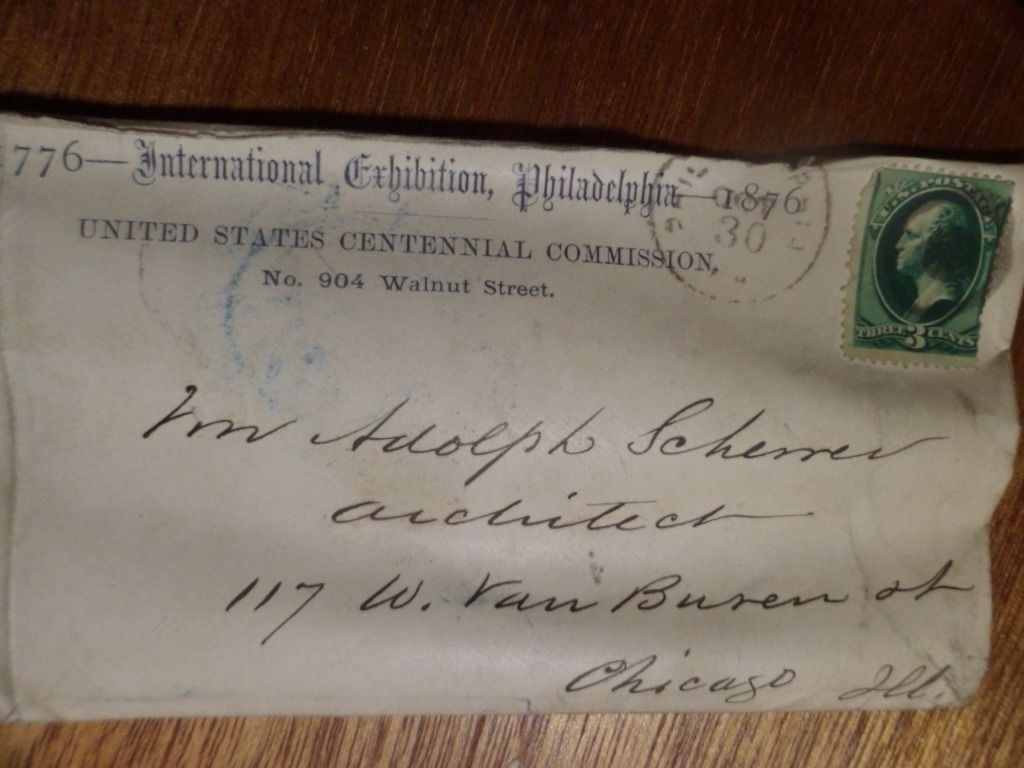 776—International Exhibition, Philadelphia—1876
UNITED STATES CENTENNIAL COMMISSION,
No. 904 Walnut Street.
30
U.S. POSTAGE
THREE 3 CENTS
Wm Adolph Scherrer
Architect
117 W. Van Buren st
Chicago Ill.